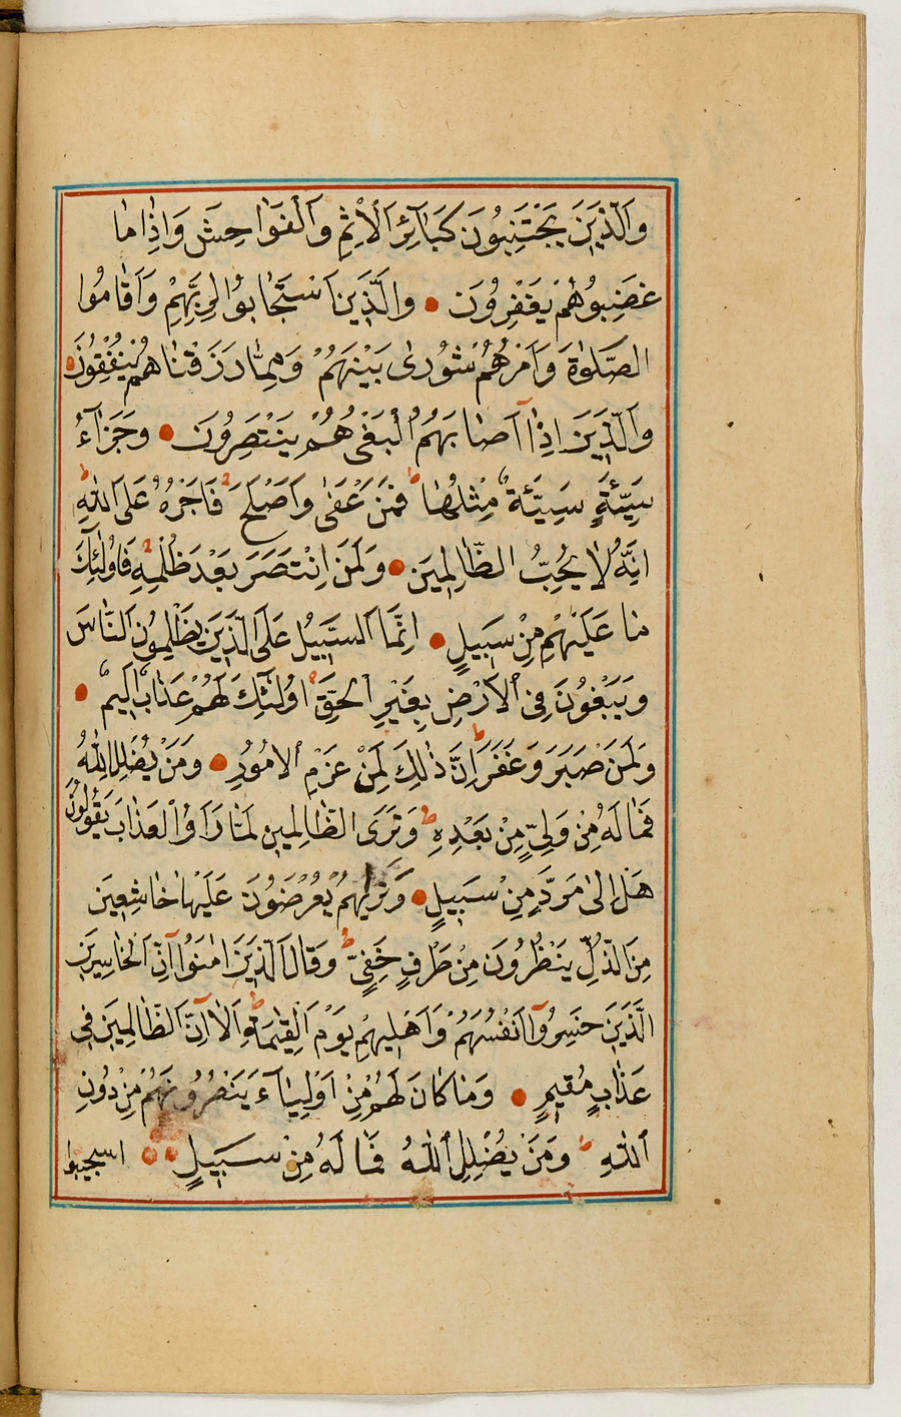 وَالَّذِينَ يَجْتَنِبُونَ كَبَائِرَ الْاِثْمِ وَالْفَوَاحِشَ وَاِذَا مَا
غَضِبُوا هُمْ يَغْفِرُونَ • وَالَّذِينَ اسْتَجَابُوا لِرَبِّهِمْ وَاَقَامُوا
الصَّلٰوةَ وَاَمْرُهُمْ شُورٰى بَيْنَهُمْ وَمِمَّا رَزَقْنَاهُمْ يُنْفِقُونَ •
وَالَّذِينَ اِذَا اَصَابَهُمُ الْبَغْىُ هُمْ يَنْتَصِرُونَ • وَجَزَآءُ
سَيِّئَةٍ سَيِّئَةٌ مِثْلُهَا ط فَمَنْ عَفٰى وَاَصْلَحَ فَاَجْرُهُ عَلَى اللّٰهِ ط
اِنَّهُ لَا يُحِبُّ الظَّالِمِينَ • وَلَمَنِ انْتَصَرَ بَعْدَ ظُلْمِهِ فَاُولٰئِكَ
مَا عَلَيْهِمْ مِنْ سَبِيلٍ • اِنَّمَا السَّبِيلُ عَلَى الَّذِينَ يَظْلِمُونَ النَّاسَ
وَيَبْغُونَ فِى الْاَرْضِ بِغَيْرِ الْحَقِّ اُولٰئِكَ لَهُمْ عَذَابٌ اَلِيمٌ •
وَلَمَنْ صَبَرَ وَغَفَرَ ط اِنَّ ذٰلِكَ لَمِنْ عَزْمِ الْاُمُورِ • وَمَنْ يُضْلِلِ اللّٰهُ
فَمَا لَهُ مِنْ وَلِيٍّ مِنْ بَعْدِهِ ط وَتَرَى الظَّالِمِينَ لَمَّا رَاَوُا الْعَذَابَ يَقُولُونَ
هَلْ اِلٰى مَرَدٍّ مِنْ سَبِيلٍ • وَتَرٰيهُمْ يُعْرَضُونَ عَلَيْهَا خَاشِعِينَ
مِنَ الذُّلِّ يَنْظُرُونَ مِنْ طَرْفٍ خَفِيٍّ ط وَقَالَ الَّذِينَ اٰمَنُوا اِنَّ الْخَاسِرِينَ
الَّذِينَ خَسِرُوا اَنْفُسَهُمْ وَاَهْلِيهِمْ يَوْمَ الْقِيٰمَةِ ط اَلَا اِنَّ الظَّالِمِينَ فِى
عَذَابٍ مُقِيمٍ • وَمَا كَانَ لَهُمْ مِنْ اَوْلِيَآءَ يَنْصُرُونَهُمْ مِنْ دُونِ
اللّٰهِ ط وَمَنْ يُضْلِلِ اللّٰهُ فَمَا لَهُ مِنْ سَبِيلٍ • • اسجيبوا